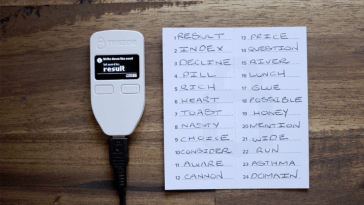 Write down the seed
1st word is:
result
1 RESULT
2 INDEX
3 DECLINE
4 PILL
5 RICH
6 HEART
7 TOAST
8 NASTY
9 CHOICE
10 CONSIDER
11 AWARE
12 CANNON
13 PRICE
14 QUESTION
15 RIVER
16 LUNCH
17 GLUE
18 POSSIBLE
19 HONEY
20 MENTION
21 WIDE
22 RUN
23 ASTHMA
24 DOMAIN